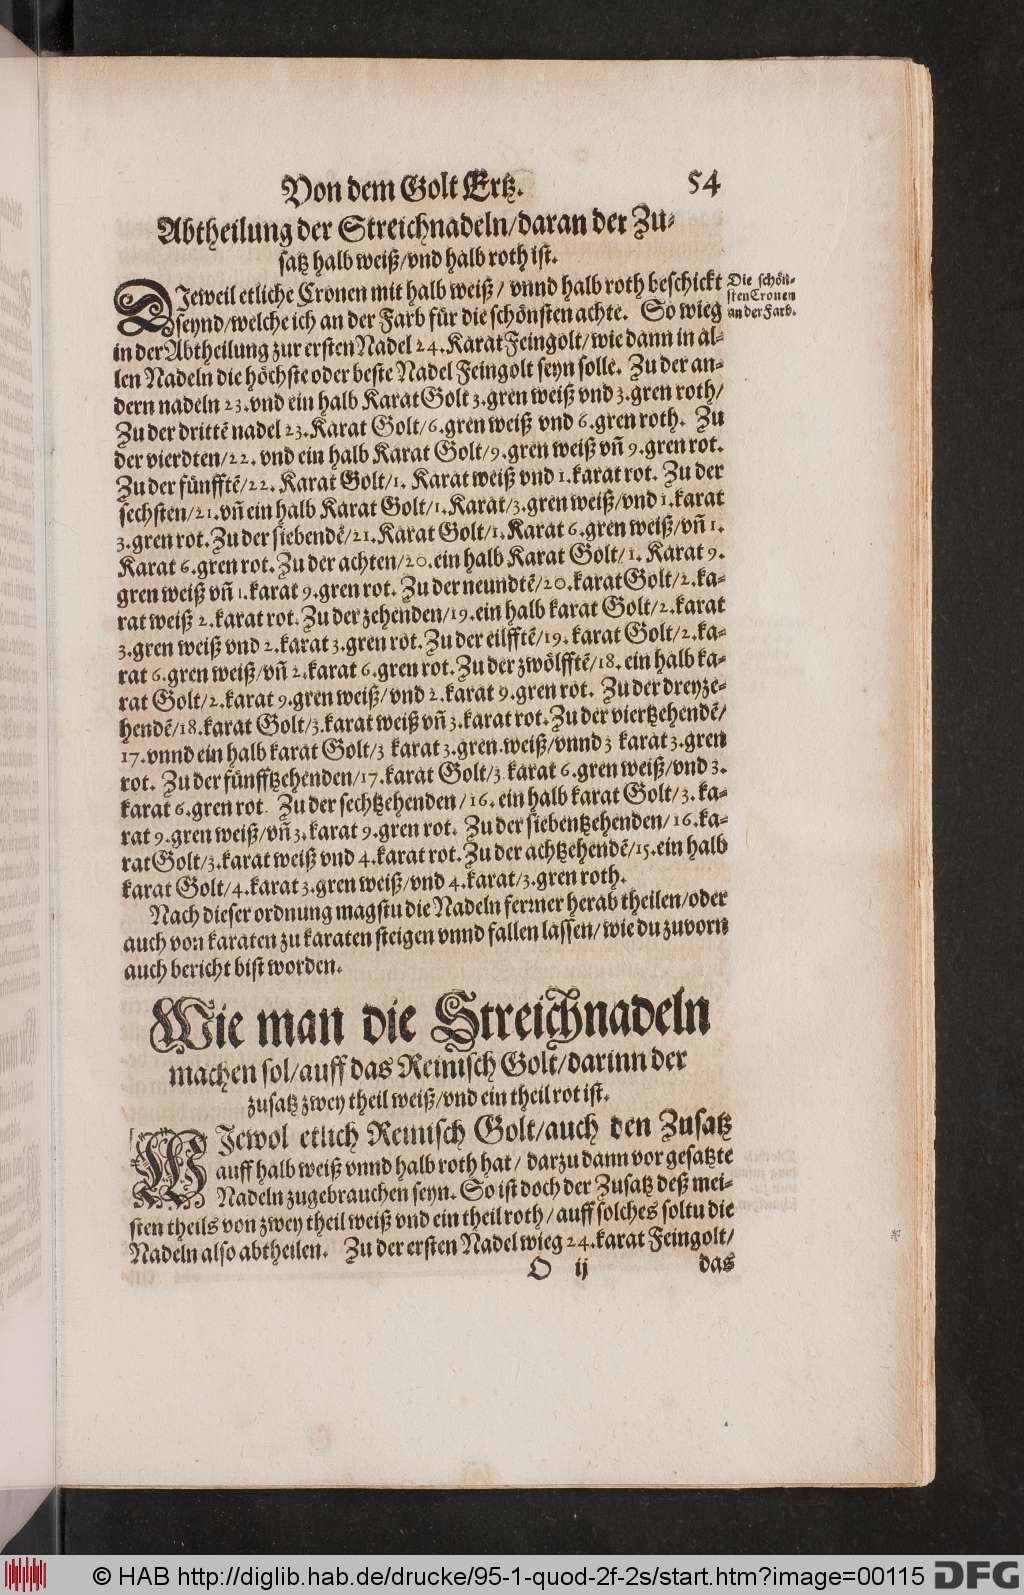 Von dem Golt Ertz. 54
Abtheilung der Streichnadeln/daran der Zu-
satz halb weiß/vnd halb roth ist.
DJeweil etliche Cronen mit halb weiß/ vnnd halb roth beschickt
seynd/welche ich an der Farb für die schönsten achte. So wieg
in der Abtheilung zur ersten Nadel 24. Karat Feingolt/wie dann in al-
len Nadeln die höchste oder beste Nadel Feingolt seyn solle. Zu der an-
dern nadeln 23. vnd ein halb Karat Golt 3. gren weiß vnd 3. gren roth/
Zu der drittē nadel 23. Karat Golt/6. gren weiß vnd 6. gren roth. Zu
der vierdten/22. vnd ein halb Karat Golt/9. gren weiß vñ 9. gren rot.
Zu der fünfftē/22. Karat Golt/1. Karat weiß vnd 1. karat rot. Zu der
sechsten/21. vñ ein halb Karat Golt/1. Karat/3. gren weiß/vnd 1. karat
3. gren rot. Zu der siebendē/21. Karat Golt/1. Karat 6. gren weiß/vñ 1.
Karat 6. gren rot. Zu der achten/20. ein halb Karat Golt/1. Karat 9.
gren weiß vñ 1. karat 9. gren rot. Zu der neundtē/20. karat Golt/2. ka-
rat weiß 2. karat rot. Zu der zehenden/19. ein halb karat Golt/2. karat
3. gren weiß vnd 2. karat 3. gren rot. Zu der eilfftē/19. karat Golt/2. ka-
rat 6. gren weiß/vñ 2. karat 6. gren rot. Zu der zwölfftē/18. ein halb ka-
rat Golt/2. karat 9. gren weiß/vnd 2. karat 9. gren rot. Zu der dreyze-
hendē/18. karat Golt/3. karat weiß vñ 3. karat rot. Zu der viertzehendē/
17. vnnd ein halb karat Golt/3 karat 3. gren. weiß/vnnd 3 karat 3. gren
rot. Zu der fünfftzehenden/17. karat Golt/3 karat 6. gren weiß/vnd 3.
karat 6. gren rot. Zu der sechtzehenden/16. ein halb karat Golt/3. ka-
rat 9. gren weiß/vñ 3. karat 9. gren rot. Zu der siebentzehenden/16. ka-
rat Golt/3. karat weiß vnd 4. karat rot. Zu der achtzehendē/15. ein halb
karat Golt/4. karat 3. gren weiß/vnd 4. karat/3. gren roth.
Nach dieser ordnung magstu die Nadeln ferrner herab theilen/oder
auch von karaten zu karaten steigen vnnd fallen lassen/wie du zuvorn
auch bericht bist worden.
Die schön-
sten Cronen
an der Farb.
Wie man die Streichnadeln
machen sol/auff das Reinisch Golt/darinn der
zusatz zwey theil weiß/vnd ein theil rot ist.
WJewol etlich Reinisch Golt/auch den Zusatz
auff halb weiß vnnd halb roth hat/ darzu dann vor gesatzte
Nadeln zugebrauchen seyn. So ist doch der Zusatz deß mei-
sten theils von zwey theil weiß vnd ein theil roth/auff solches soltu die
Nadeln also abtheilen. Zu der ersten Nadel wieg 24. karat Feingolt/
O ij das
© HAB http://diglib.hab.de/drucke/95-1-quod-2f-2s/start.htm?image=00115 DFG